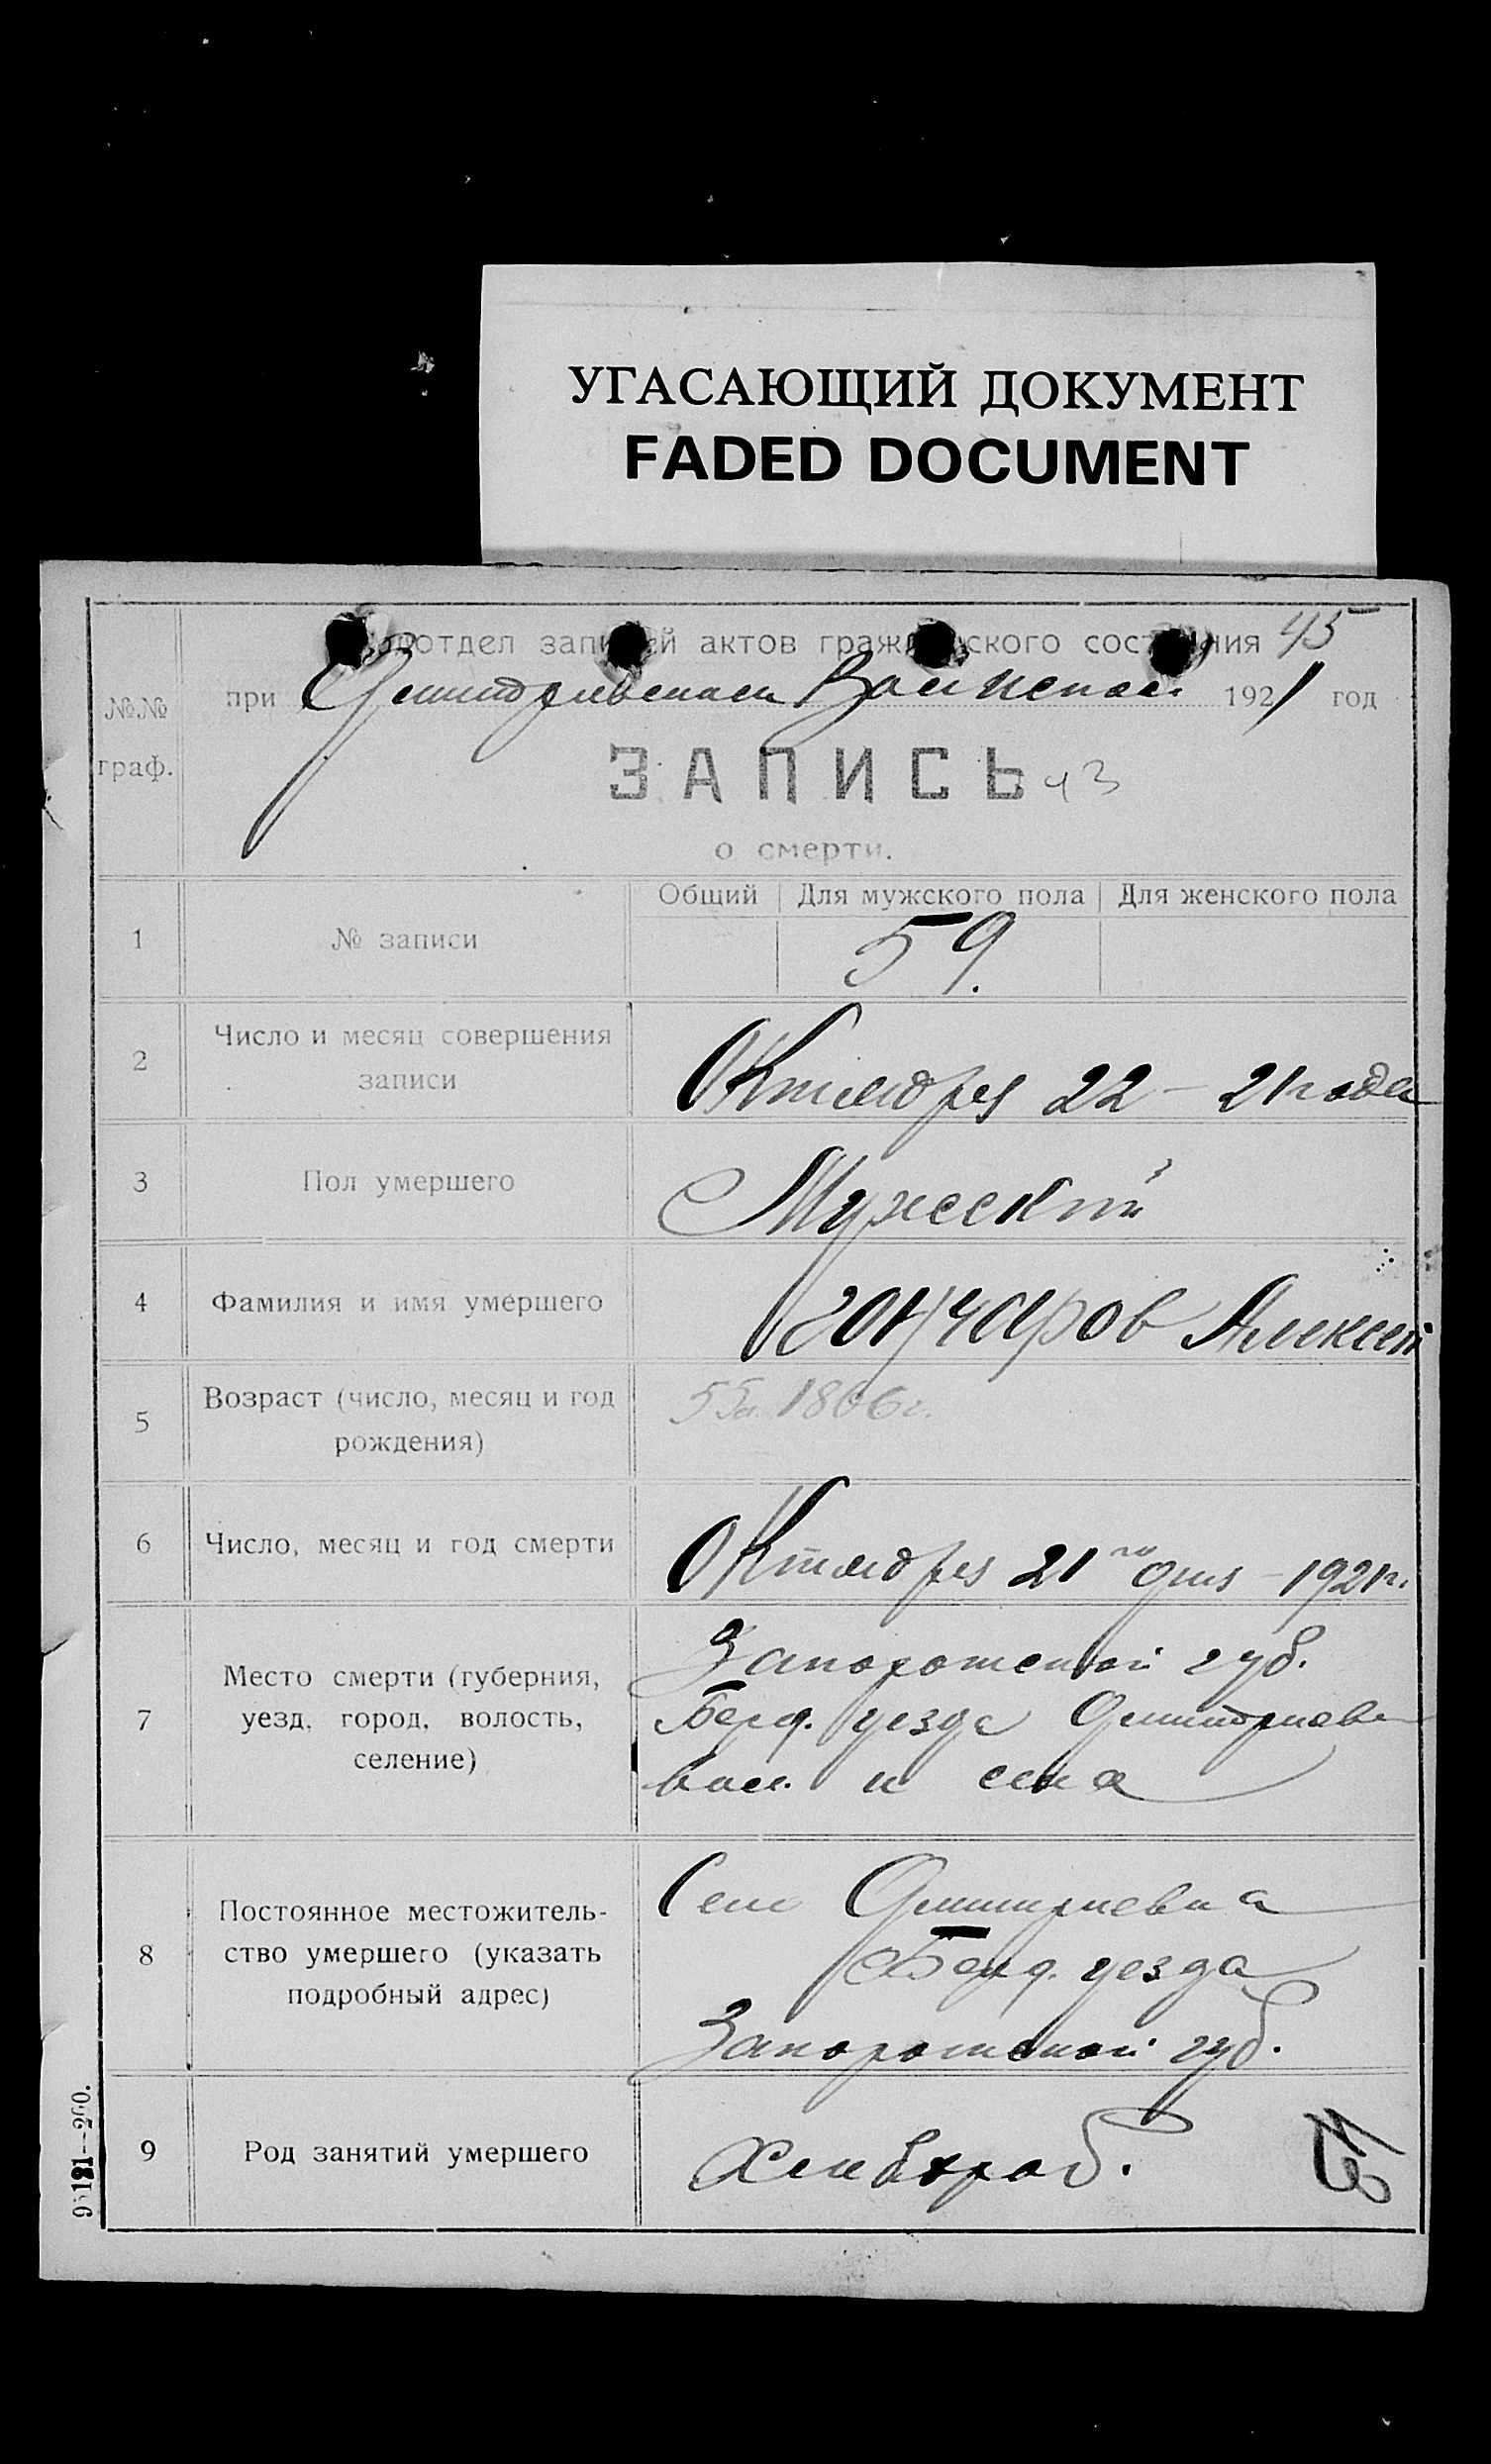 УГАСАЮЩИЙ ДОКУМЕНТ
FADED DOCUMENT
Подотдел записей актов гражданского состояния 45
при Дмитриевском Волиспол 1921 год
№№ граф.
ЗАПИСЬ 43
о смерти.
Общий Для мужского пола Для женского пола
1 № записи 59.
2 Число и месяц совершения записи
Октября 22 – 21 года
3 Пол умершего Мужской
4 Фамилия и имя умершего Гончаров Алексей
5 Возраст (число, месяц и год рождения)
55л. 1866 г.
6 Число, месяц и год смерти Октября 21го дня – 1921 г.
7 Место смерти (губерния, уезд, город, волость, селение)
Запорожской губ.
Берд. уезда Дмитриев
вол. и села
8 Постоянное местожитель-
ство умершего (указать
подробный адрес)
Село Дмитриевка
Берд. уезда
Запорожской губ.
9 Род занятий умершего Хлебороб.